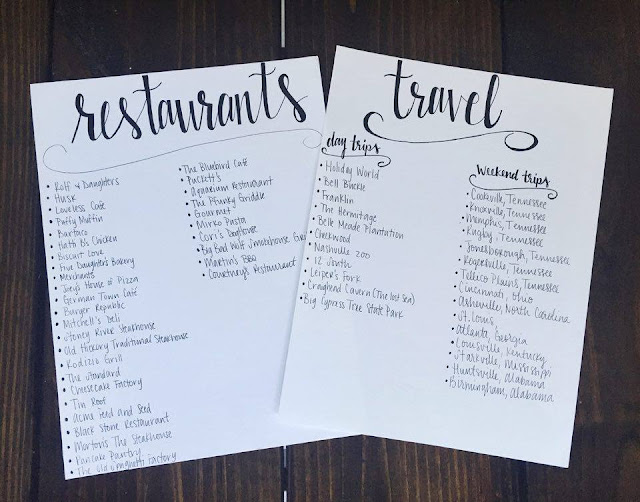 restaurants
Rolf & Daughters
Husk
Loveless Cafe
Puffy Muffin
Burtaco
Hatti B's Chicken
Biscuit Love
Five Daughters Bakery
Merchants
Joey's House of Pizza
German Town Café
Burger Republic
Mitchell's Deli
Stoney River Steakhouse
Old Hickory Traditional Steakhouse
Rodizio Grill
The Standard
Cheesecake Factory
Tin Roof
Acme Feed and Seed
Black Stone Restaurant
Morton's The Steakhouse
Pancake Pantry
The Old Spaghetti Factory
The Bluebird Café
Puckett's
Aquarium Restaurant
The Pfunky Griddle
Gourmet
Mirko Pasta
Cori's Doghouse
Big Bad Wolf Smokehouse
Martin's BBQ
Courtney's Restaurant
travel
day trips
Holiday World
Bell Buckle
Franklin
The Hermitage
Belle Meade Plantation
Cheekwood
Nashville Zoo
12 South
Leiper's Fork
Craighead Cavern (The Lost Sea)
Big Cypress Tree State Park
Weekend trips
Cookville, Tennessee
Knoxville, Tennessee
Memphis, Tennessee
Rugby, Tennessee
Jonesborough, Tennessee
Rogersville, Tennessee
Telleco Plains, Tennessee
Cincinnati, Ohio
Asheville, North Carolina
St. Louis,
Atlanta, Georgia
Louisville, Kentucky
Starkville, Mississippi
Huntsville, Alabama
Birmingham, Alabama